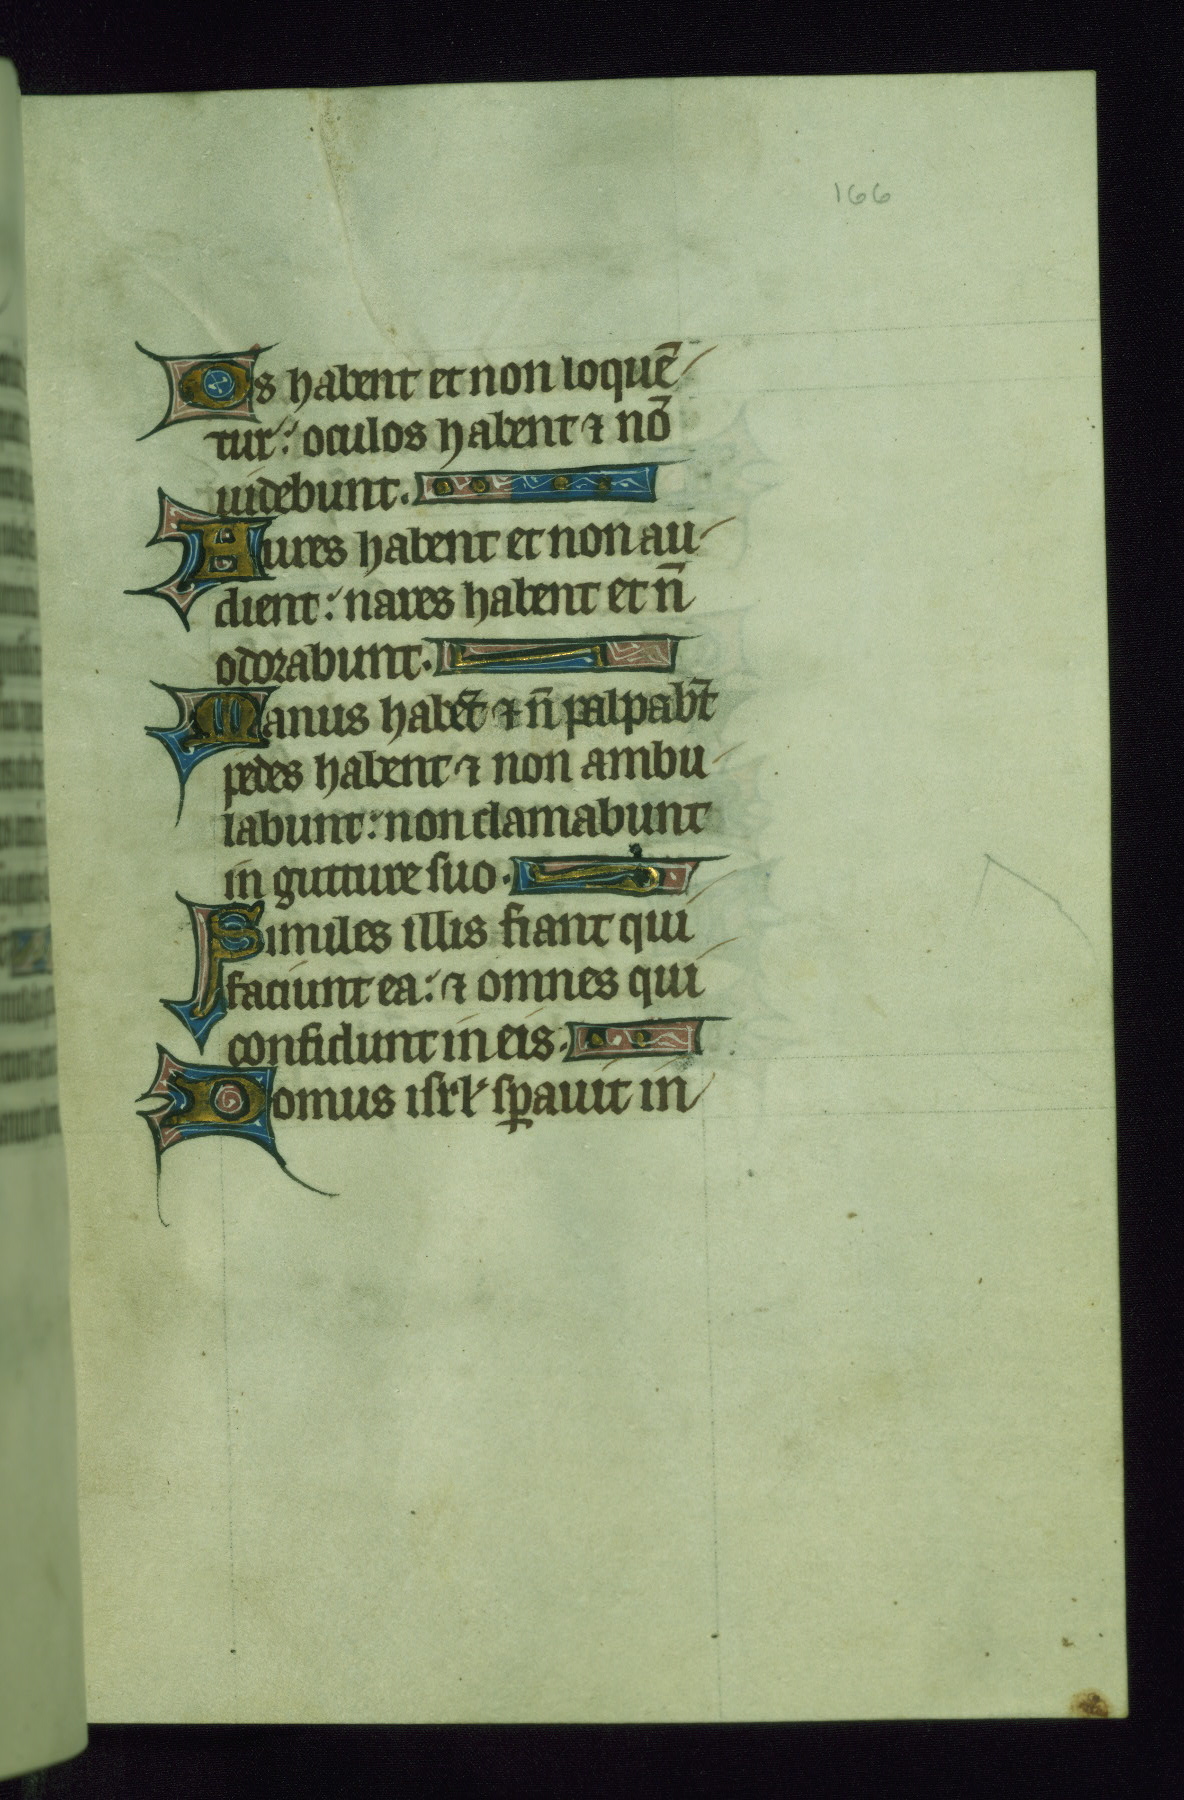 166
Os habent et non loquē
tur: oculos habent ⁊ nō
uidebunt.
Aures habent et non au
dient: nares habent et n̄
odorabunt.
Manus habēt ⁊ n̄ palpab̄t
pedes habent ⁊ non ambu
labunt: non clamabunt
in gutture suo.
Similes illis fiant qui
faciunt ea: ⁊ omnes qui
confidunt in eis.
Domus isrl' sꝑauit in